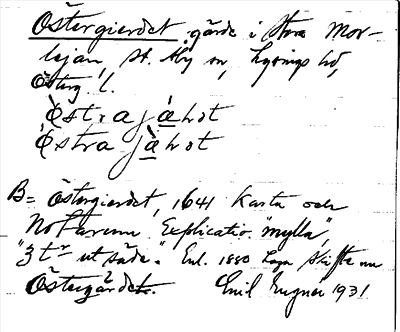 Östergierdet gärde i Stora Mor-
lejan, St. Åby sn, Lysings hd,
Österg. l.
östrajähot
östrajähot
B = Östergierdet, 1641 Karta och
Notarum Explicatio "mylla",
"3 tr utsäde". Enl. 1880 Laga Skifte nu
Östergärdet. Emil Lugner 1931